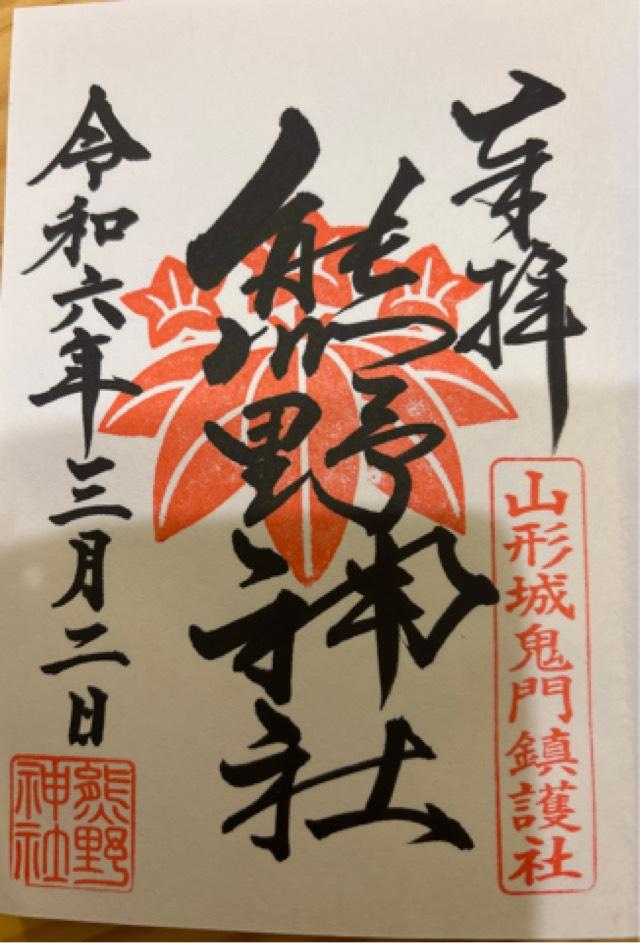 奉拝
山形城鬼門鎮護社
熊野神社
令和六年三月二日
熊野神社